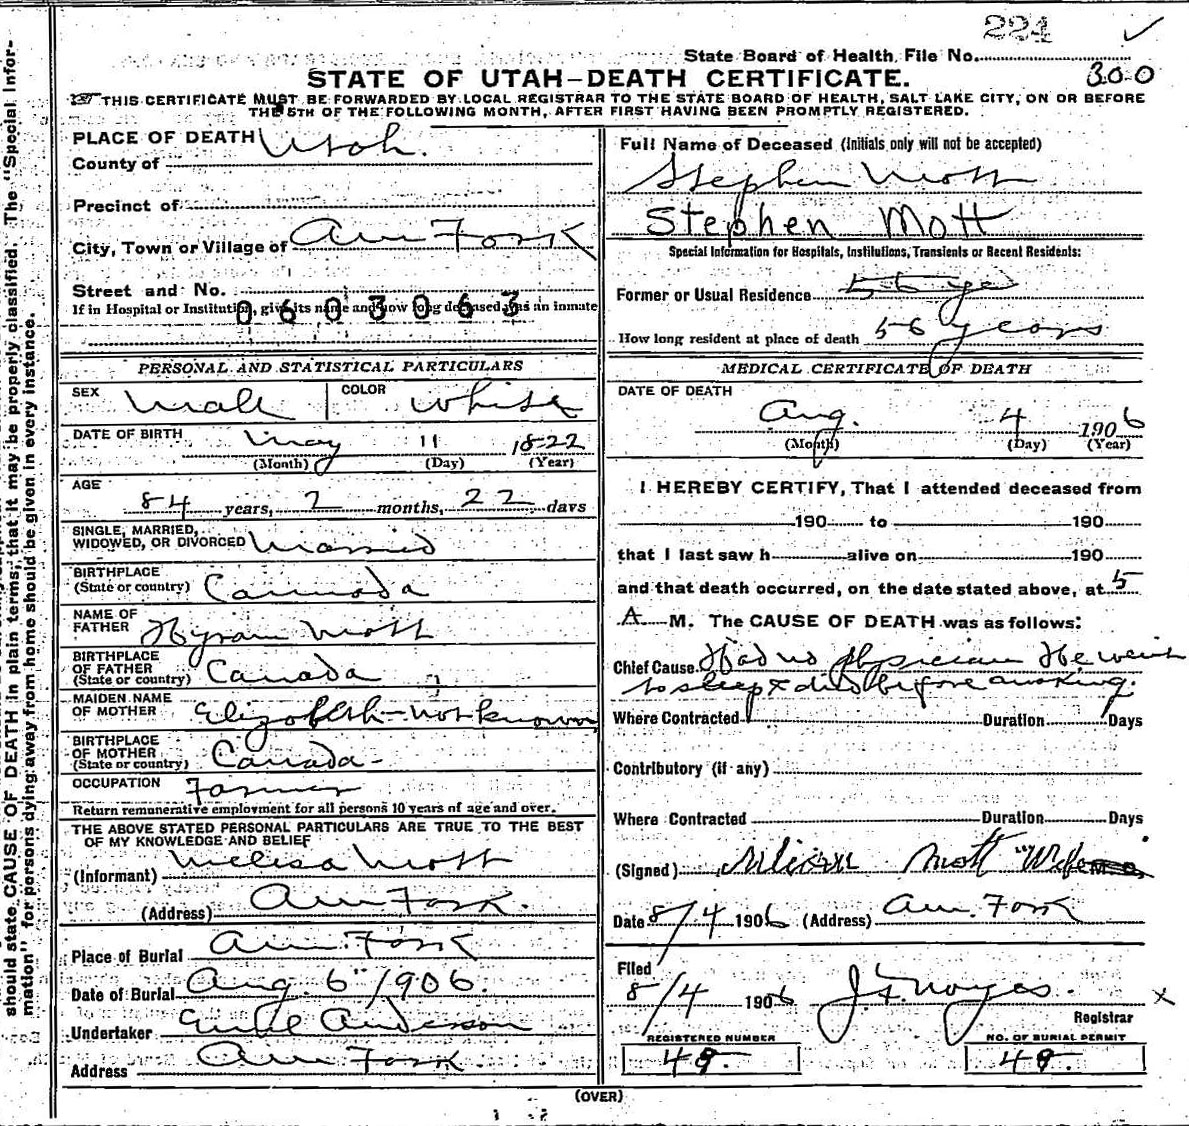 224
State Board of Health File No.
300
STATE OF UTAH—DEATH CERTIFICATE.
THIS CERTIFICATE MUST BE FORWARDED BY LOCAL REGISTRAR TO THE STATE BOARD OF HEALTH, SALT LAKE CITY, ON OR BEFORE
THE 5TH OF THE FOLLOWING MONTH, AFTER FIRST HAVING BEEN PROMPTLY REGISTERED.
should state CAUSE OF DEATH in plain terms, that it may be properly classified. The "Special Infor-
mation" for persons dying away from home should be given in every instance.
PLACE OF DEATH
County of Utah.
Precinct of
City, Town or Village of Am Fork
Street and No.
If in Hospital or Institution, give its name and how long deceased was an inmate
0603063
PERSONAL AND STATISTICAL PARTICULARS
SEX Male COLOR White
DATE OF BIRTH May 11 1822
(Month) (Day) (Year)
AGE
84 years, 2 months, 22 days
SINGLE, MARRIED,
WIDOWED, OR DIVORCED Married
BIRTHPLACE
(State or country) Cannada
NAME OF
FATHER Hyram Mott
BIRTHPLACE
OF FATHER
(State or country) Canada
MAIDEN NAME
OF MOTHER Elizabeth—not known
BIRTHPLACE
OF MOTHER
(State or country) Canada-
OCCUPATION Farmer
Return remunerative employment for all persons 10 years of age and over.
THE ABOVE STATED PERSONAL PARTICULARS ARE TRUE TO THE BEST
OF MY KNOWLEDGE AND BELIEF
(Informant) Melisa Mott
(Address) Am Fork.
Place of Burial Am. Fork
Date of Burial Aug. 6" 1906.
Undertaker Anderson
Address Am Fork.
Full Name of Deceased (Initials only will not be accepted)
Stephen Mott
Stephen Mott
Special Information for Hospitals, Institutions, Transients or Recent Residents:
Former or Usual Residence 56 yrs
How long resident at place of death 56 years
MEDICAL CERTIFICATE OF DEATH
DATE OF DEATH
Aug. 4 1906
(Month) (Day) (Year)
I HEREBY CERTIFY, That I attended deceased from
190 to 190
that I last saw h alive on 190
and that death occurred, on the date stated above, at 5
A M. The CAUSE OF DEATH was as follows:
Chief Cause. Had no physician He went
to sleep & died before awaking.
Where Contracted Duration Days
Contributory (if any)
Where Contracted Duration Days
(Signed) Mott "Wife
Date 8/4 1906 (Address) Am. Fork
Filed
8/4 1906 J. F. Noyes.
Registrar
x
REGISTERED NUMBER
48.
NO. OF BURIAL PERMIT
48.
(OVER)